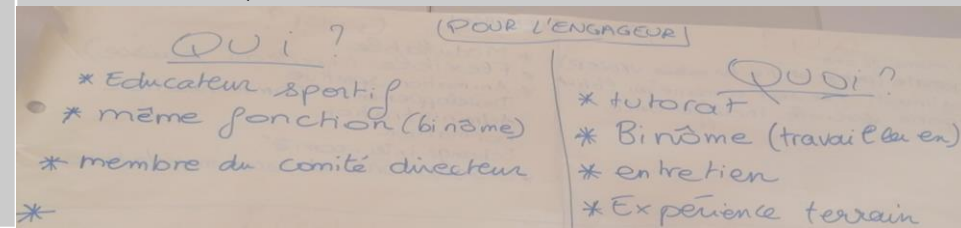 (POUR L'ENGAGEUR)
QUi ?
* Educateur sportif
* même fonction (binôme)
* membre du comité directeur
*
QUOi ?
* tutorat
* Binôme (travailler en)
* entretien
* Expérience terrain